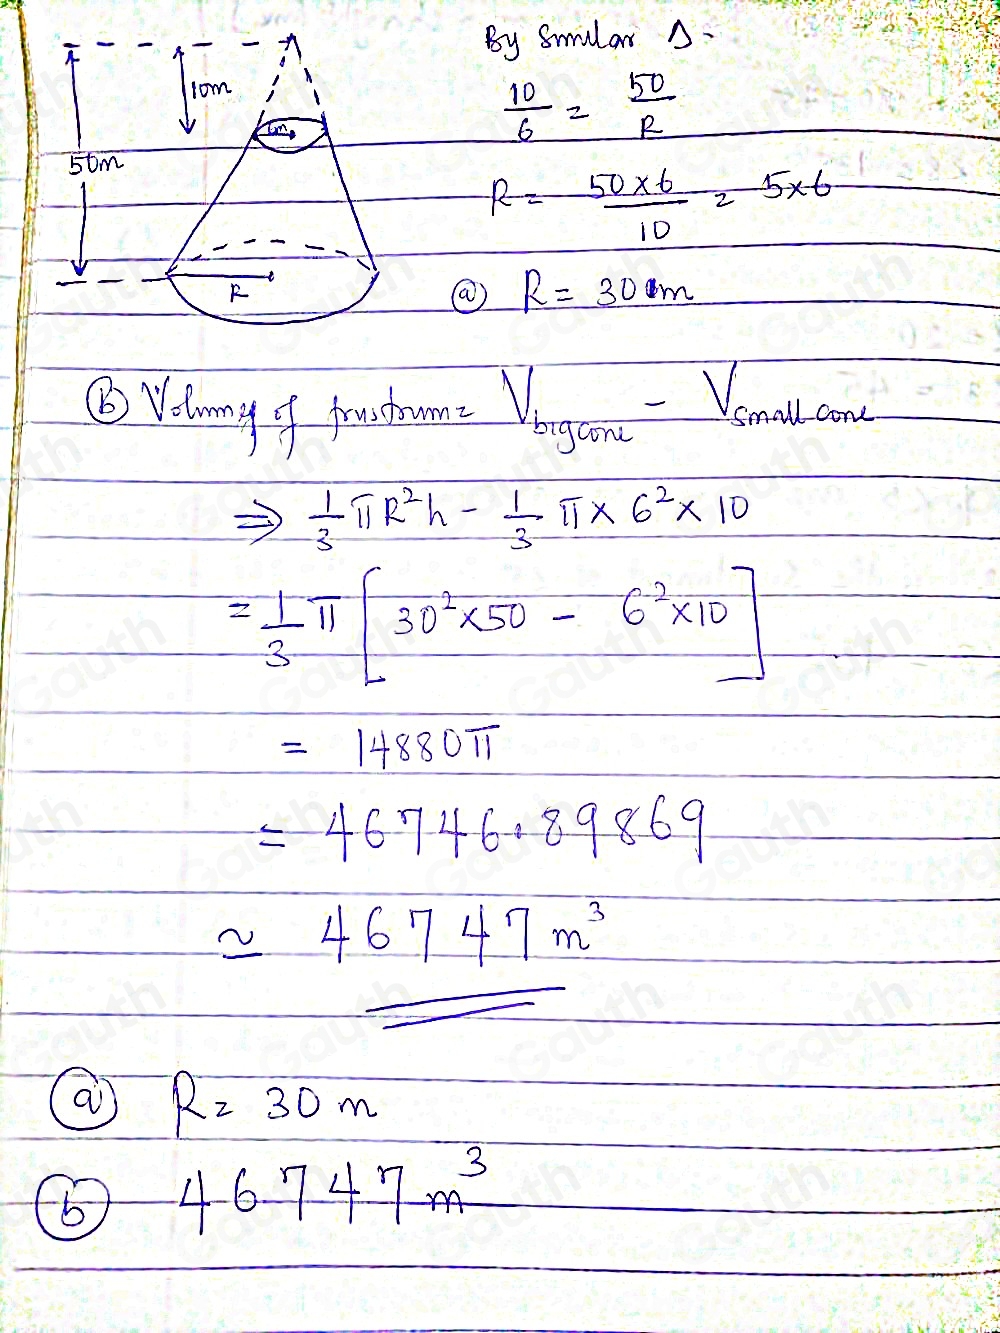 By Similar Δ-
10m
50m
6m
R
10/6 = 50/R
R = 50×6/10 = 5×6
ⓐ R = 30m
ⓑ Volume of frustrum = V big cone - V small cone
⇒ 1/3 πR²h - 1/3 π × 6² × 10
= 1/3 π [30²×50 - 6²×10]
= 14880π
= 46746.89869
≃ 46747 m³
ⓐ R = 30 m
ⓑ 46747 m³
Gauth